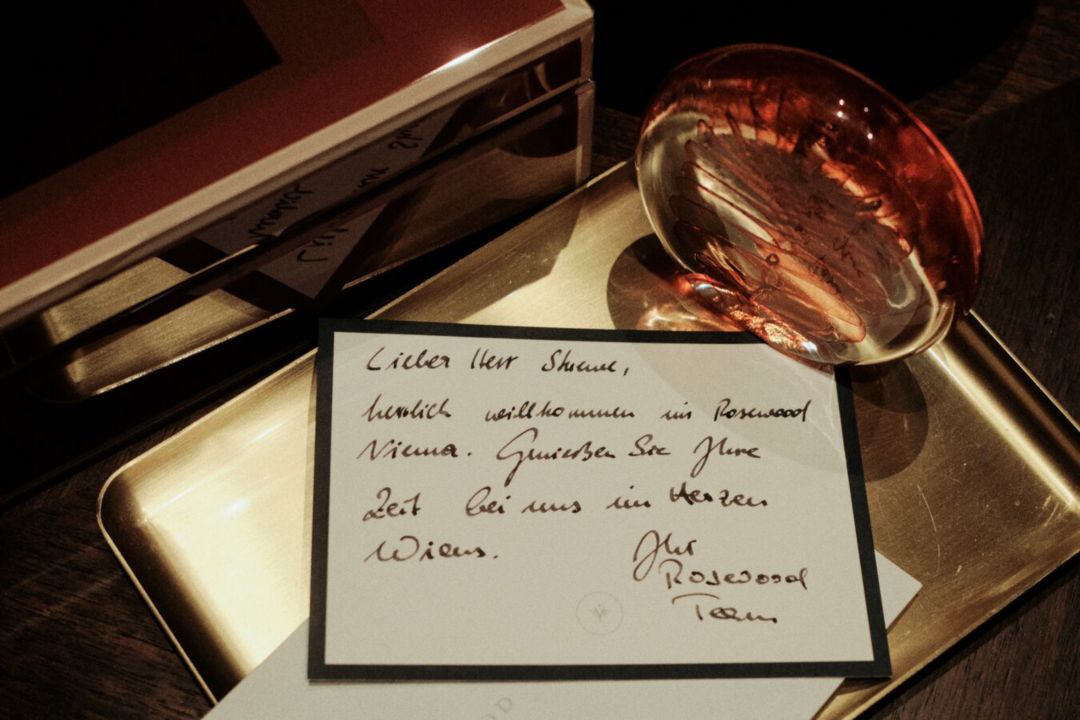 Lieber Herr
herzlich willkommen im Rosewood
Vienna. Genießen Sie Ihre
Zeit bei uns im Herzen
Wiens.
Ihr
Rosewood
Team